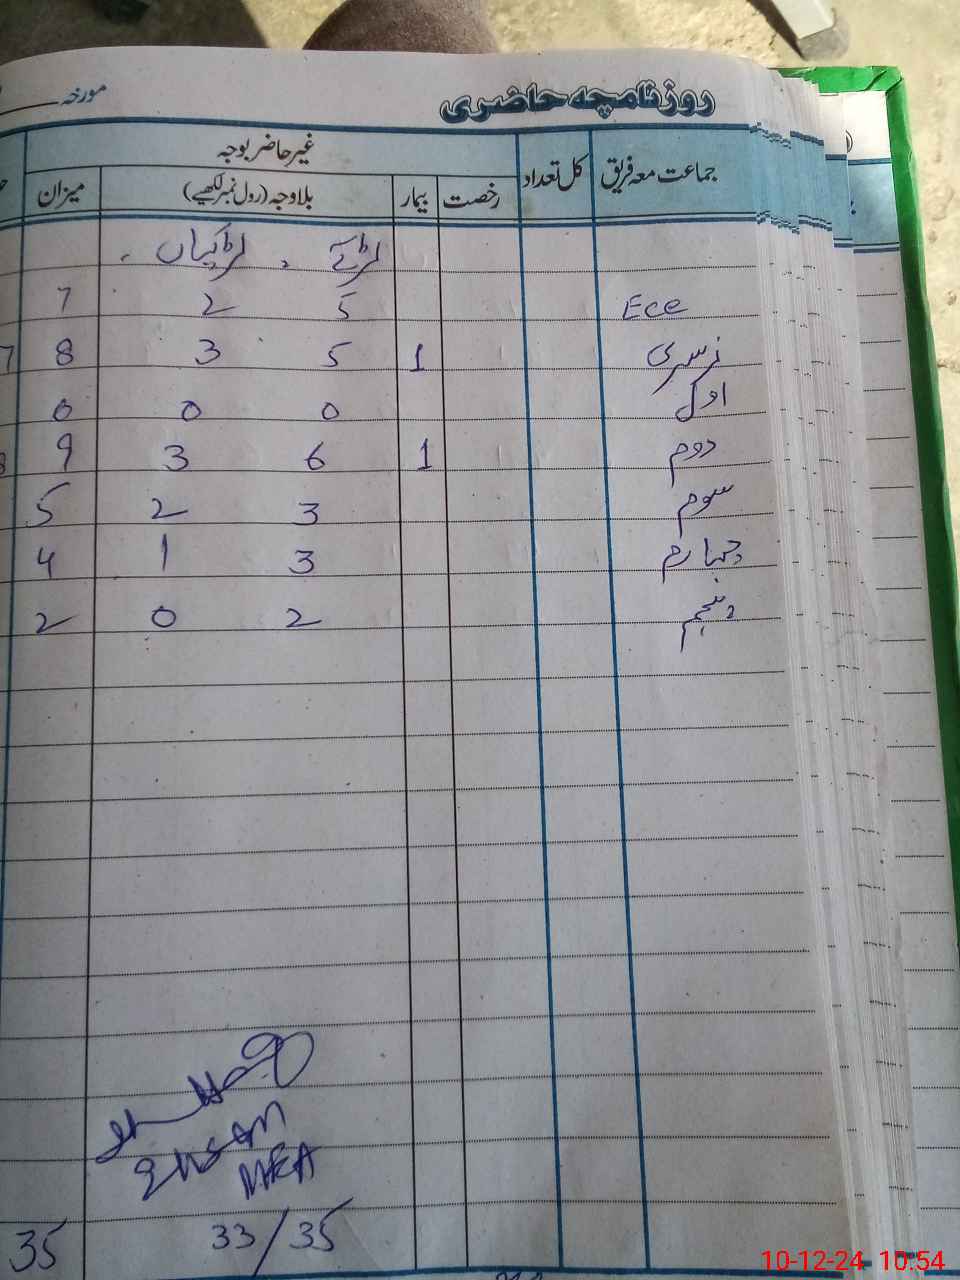 روزنامچہ حاضری مورخہ
جماعت معہ فریق کل تعداد غیر حاضر بوجہ
رخصت بیمار بلاوجہ (رول نمبر لکھیے) میزان
لڑکے ، لڑکیاں ،
Ece 5 2 7
نرسری 1 5 3 8 7
اول 0 0 0
دوم 1 6 3 9 8
سوم 3 2 5
چہارم 3 1 4
پنجم 2 0 2
MEA
33/35 35
10-12-24 10:54